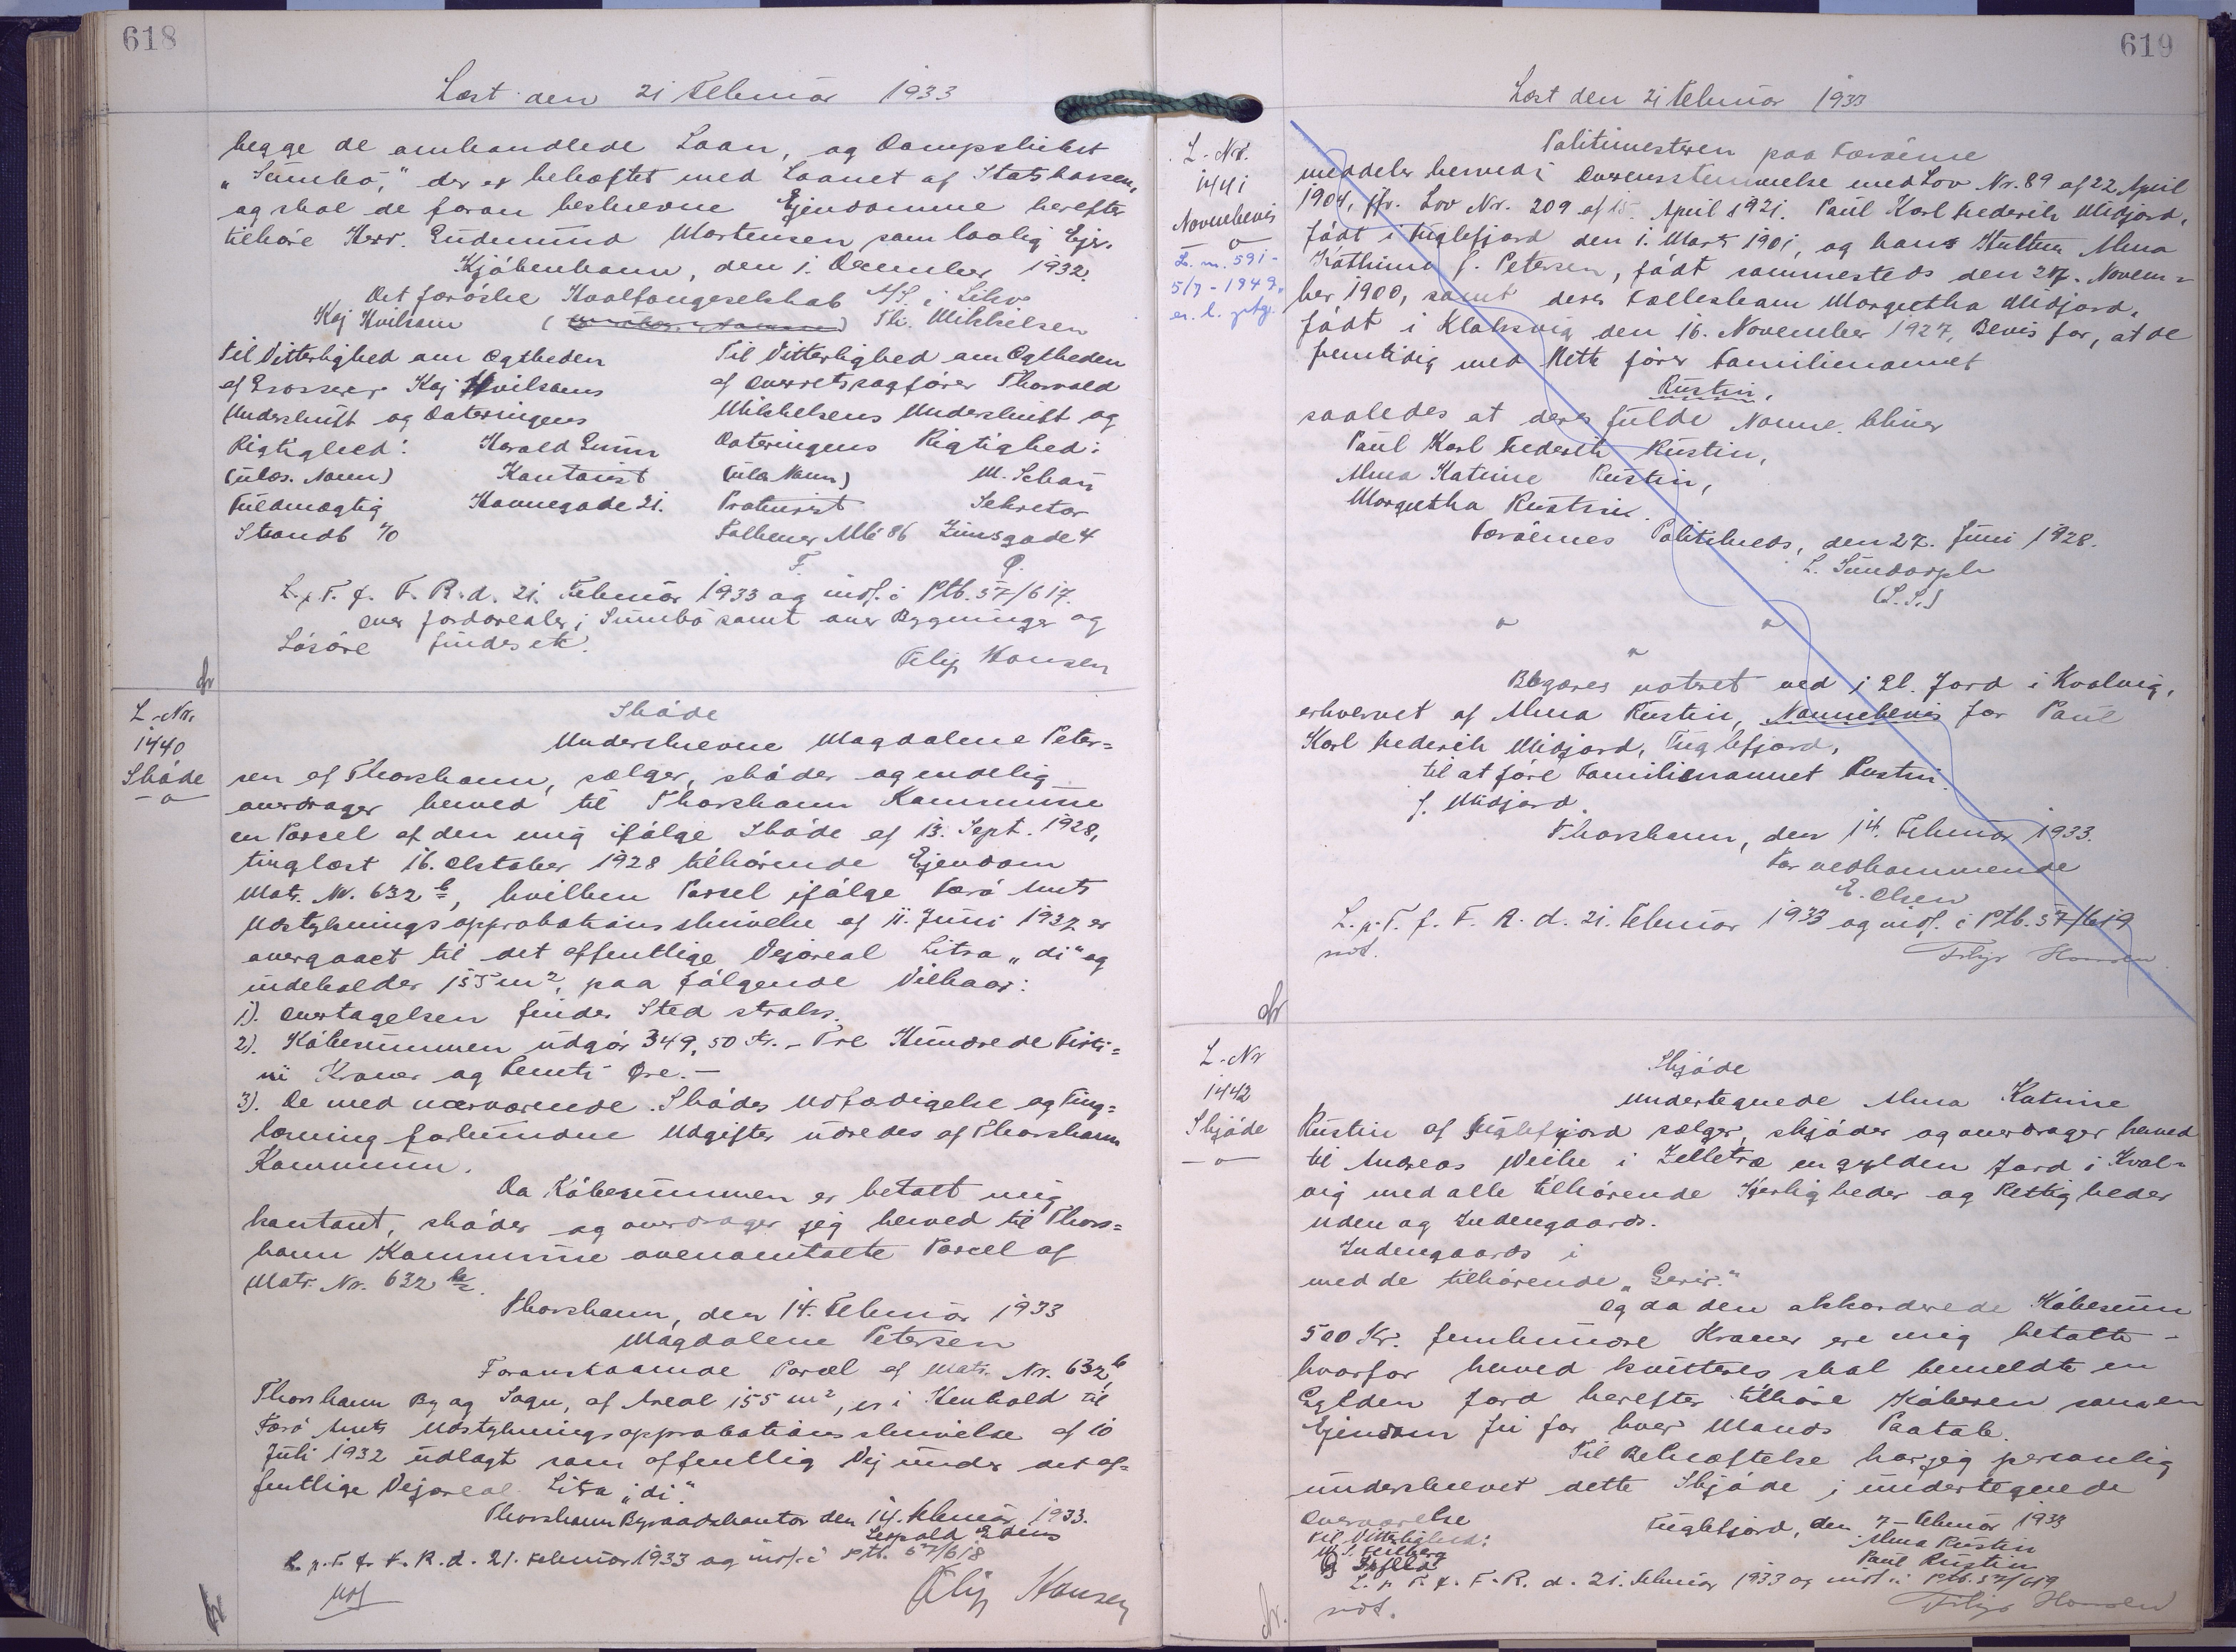 618
Læst den 21 Februar 1933
begge de omhandlede Laan, og Dampskibet
"Sumbø," der er behæftet med Laanet af Statskassen,
og skal de foran beskrevne Ejendomme herefter
tilhøre Herr. Gudmund Mortensen som lovlig Ejer.
Kjøbenhavn, den 1. December 1932.
Det færøske Hvalfangerselskab A/S. i Likv
Kaj Hvilsom Th. Mikkelsen
Til Vitterlighed om Ægtheden
af Grosserer Kaj Hvilsoms
Underskrift og Dateringens
Rigtighed: Harald Lunn
(ulæs. Navn) Kontorist
Fuldmægtig Havnegade 21.
Strandb 70
Til Vitterlighed om Ægtheden
af Overretssagfører Thorvald
Mikkelsens Underskrift og
Dateringens Rigtighed:
(ulæs. Navn) M. Schou
Prokurist Sekretær
Falkoner Allé 86 Zinnsgade 4
F. P.
L. p. T. f. F. R. d. 21. Februar 1933 og indf. i Ptb. 57/617.
over Jordarealer i Sumbø samt over Bygninger og
Løsøre findes ik.
Filip Hansen
L. Nr.
1440
Skøde
Skøde
Underskrevne Magdalene Peter=
sen af Thorshavn, sælger, skøder og endelig
overdrager herved til Thorshavn Kommune
en Parcel af den mig ifølge Skøde af 13. Sept. 1928,
tinglæst 16. Oktober 1928 tilhørende Ejendom
Matr. Nr. 632 b, hvilken Parcel ifølge Færø Amts
Udstykningsapprobationsskrivelse af 11. Juni 1932 er
overgaaet til det offentlige Vejareal Litra "di" og
indeholder 155 m², paa følgende Vilkaar:
1). Overtagelsen finder Sted straks.
2). Købesummen udgør 349,50 Kr. - Tre Hundrede Firti=
ni Kroner og Femti Øre. -
3). De med nærværende Skødes Udfærdigelse og Ting=
læsning forbundne Udgifter udredes af Thorshavn
Kommune.
Da Købesummen er betalt mig
kontant, skøder og overdrager jeg herved til Thors=
havn Kommune ovenomtalte Parcel af
Matr. Nr. 632 b.
Thorshavn, den 14. Februar 1933
Magdalene Petersen
Foranstaaende Parcel af Matr. Nr. 632 b
Thorshavn By og Sogn, af Areal 155 m², er i Henhold til
Færø Amts Udstykningsapprobationsskrivelse af 10
Juli 1932 udlagt som offentlig Vej under det of=
fentlige Vejareal Litra "di".
Thorshavn Byraadskontor den 14. Februar 1933.
L. p. T. f. F. R. d. 21. Februar 1933 og indf. i Ptb. 57/618
Filip Hansen
619
Læst den 21 Februar 1933
L. Nr.
1441
Navnebevis
L. nr. 591-
5/7-1949
Politimesteren paa Færøerne
meddeler herved i Overensstemmelse med Lov Nr. 89 af 22 April
1904, jfr. Lov Nr. 209 af 15. April 1921. Paul Karl Frederik Midjord,
født i Fuglefjord den 1. Marts 1901, og hans Hustru Alma
Kathrine f. Petersen, født sammesteds den 27. Novem=
ber 1900, samt deres Fællesbarn Margretha Midjord,
født i Klaksvig den 16. November 1927, Bevis for, at de
fremtidig med Rette fører Familienavnet
Rustin,
saaledes at deres fulde Navne bliver
Paul Karl Frederik Rustin,
Alma Katrine Rustin,
Margretha Rustin.
Færøernes Politikreds, den 27. Juni 1928.
L. Sundorph
(L. S.)
Begæres noteret ved 1 Gl. Jord i Kvalvig,
erhvervet af Alma Rustin, Navnebevis for Paul
Karl Frederik Midjord, Fuglefjord,
til at føre Familienavnet Rustin
f. Midjord.
Thorshavn, den 14. Februar 1933.
For vedkommende
E. Olsen
L. p. T. f. F. R. d. 21. Februar 1933 og indf. i Ptb. 57/619
Filip Hansen
L. Nr
1442
Skjøde
Skjøde
Undertegnede Alma Katrine
Rustin af Fuglefjord sælger, skjøder og overdrager herved
til Andreas Weihe i Zelletræ en gylden Jord i Kval=
vig med alle tilhørende Herligheder og Rettigheder
uden og Indengaards.
Indengaards i
med de tilhørende "Gerir."
Og da den akkorderede Købesum
500 Kr. femhundre Kroner ere mig betalte -
hvorfor herved kvitteres skal bemeldte en
Gylden Jord herefter tilhøre Køberen som en
Ejendom fri for hver Mands Paatale.
Til Bekræftelse har jeg personlig
underskrevet dette Skjøde i undertegnede
Overværelse
Fuglefjord, den 7 - Februar 1933
Til Vitterlighed: Alma Rustin
Paul Rustin
L. p. T. f. F. R. d. 21. Februar 1933 og indf. i Ptb. 57/619
Filip Hansen